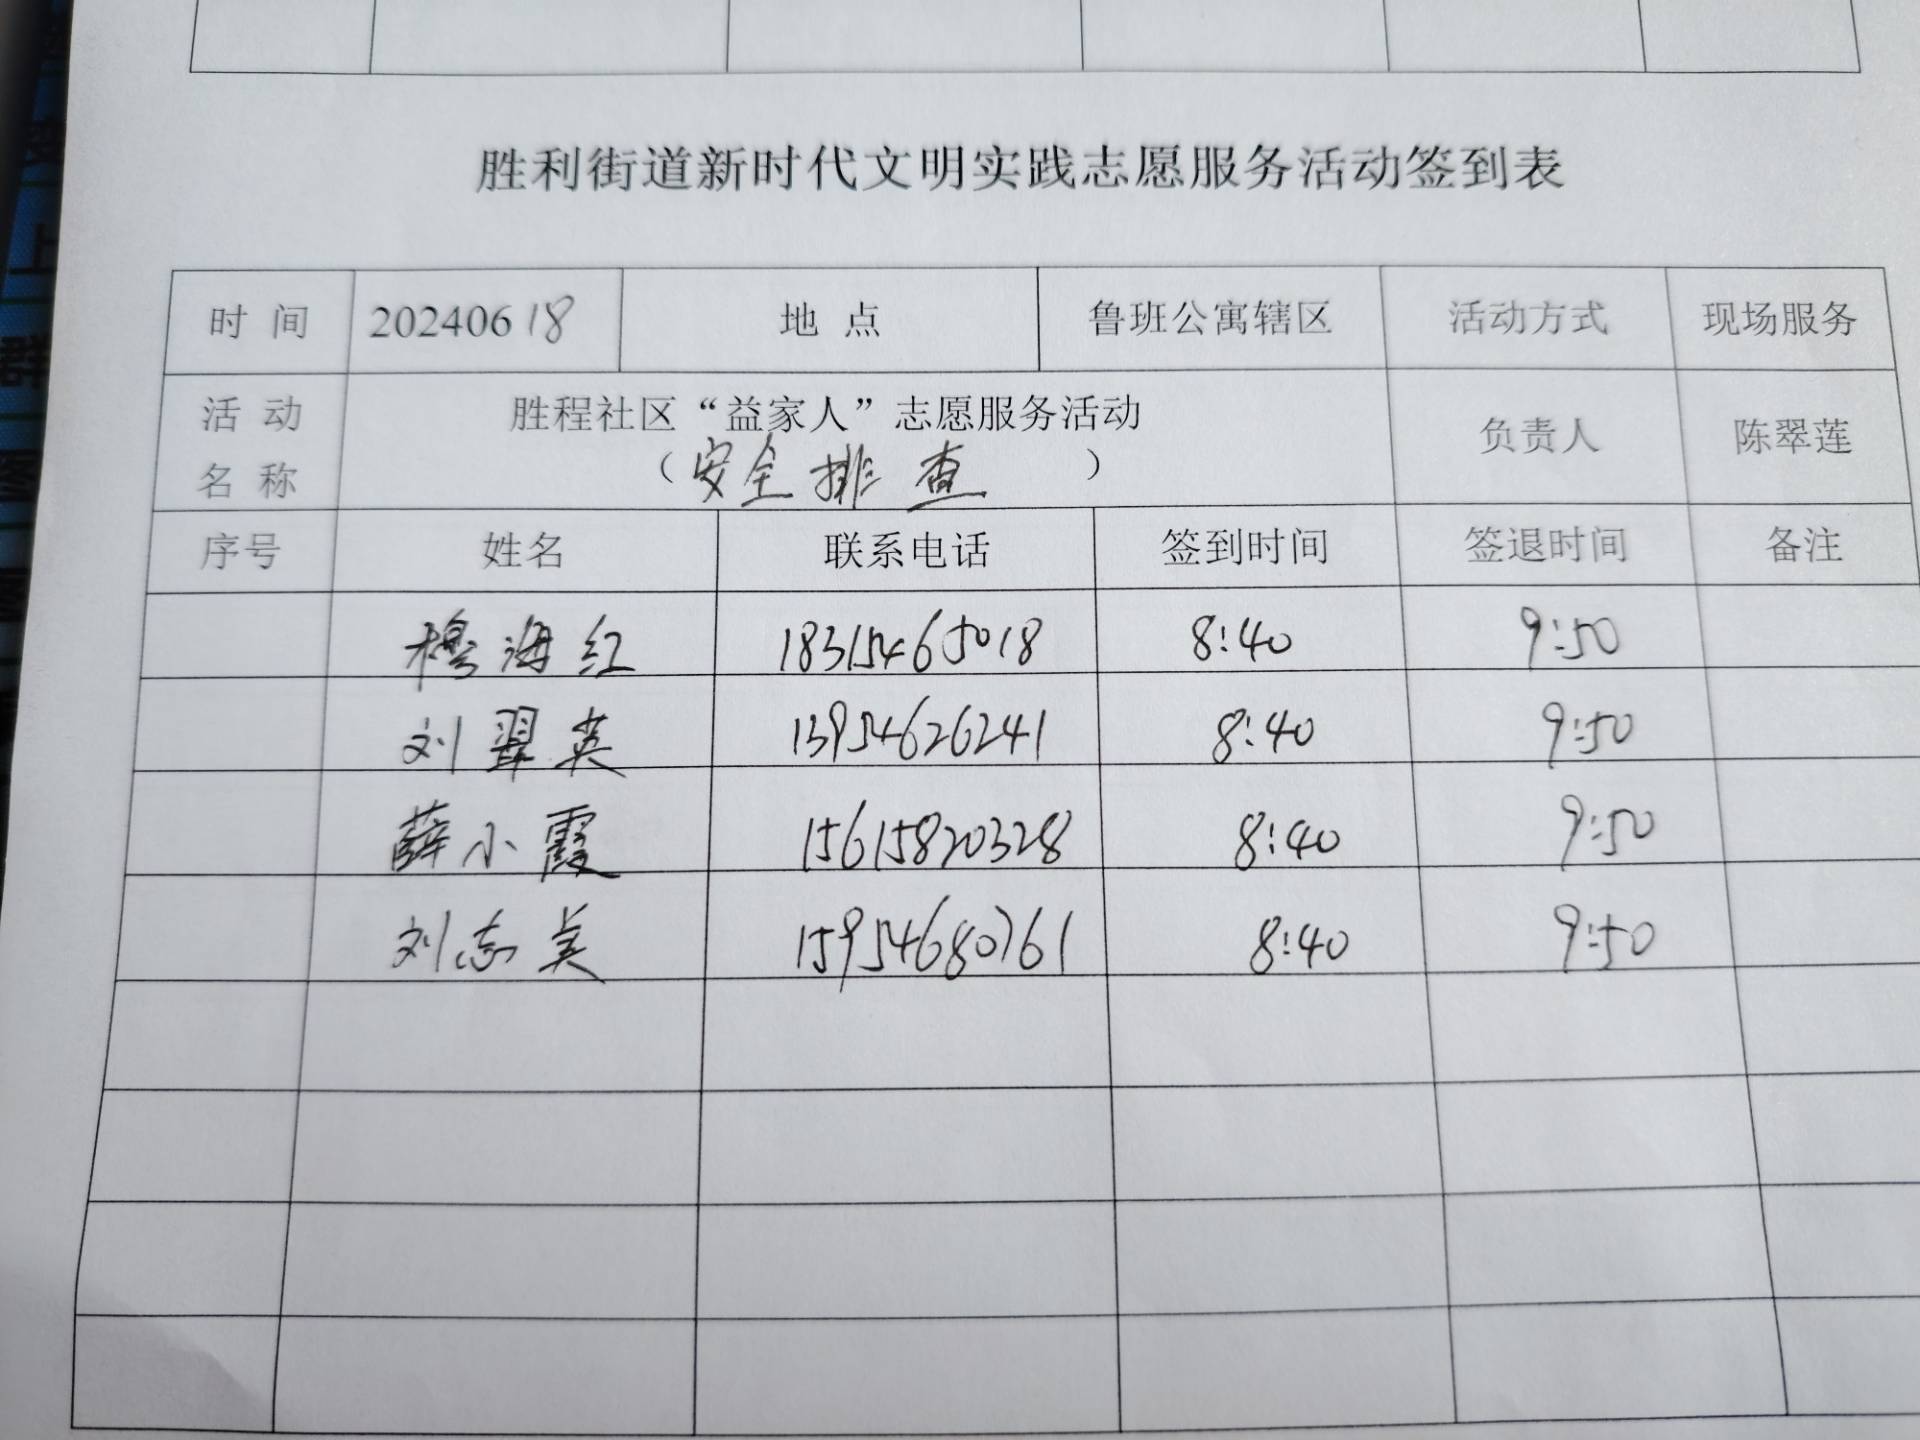 胜利街道新时代文明实践志愿服务活动签到表
时间 20240618 地点 鲁班公寓辖区 活动方式 现场服务
活动名称 胜程社区“益家人”志愿服务活动 负责人 陈翠莲
（安全排查）
序号 姓名 联系电话 签到时间 签退时间 备注
穆海红 18315465018 8:40 9:50
刘翠英 13954626241 8:40 9:50
薛小霞 15615820328 8:40 9:50
刘志美 15954680761 8:40 9:50